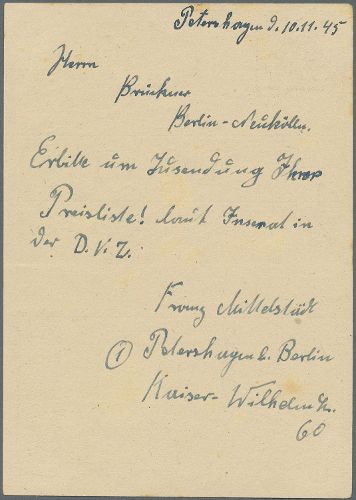 Petershagen d. 10.11.45
Herrn
Brückner
Berlin-Neukölln.
Erbitte um Zusendung Ihrer
Preisliste! laut Inserat in
der D.V.Z.
Franz Mittelstädt
(1) Petershagen b. Berlin
Kaiser-Wilhelm Str.
60